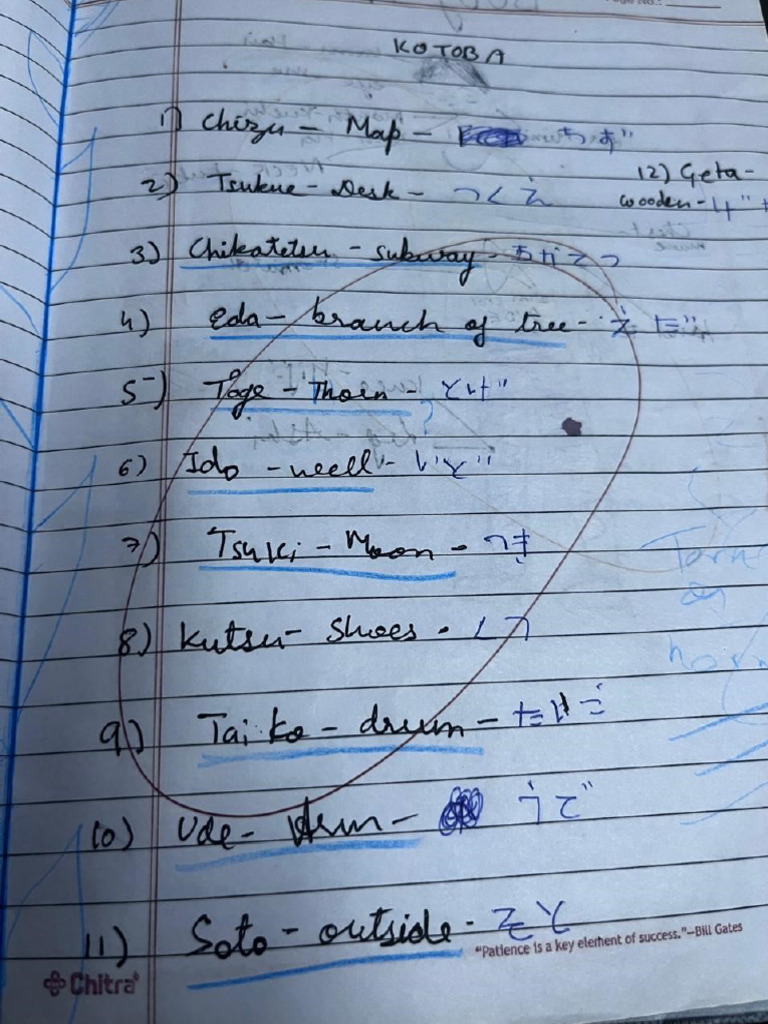 KOTOBA
1) Chizu - Map - ちず
2) Tsukue - Desk - つくえ
12) Geta -
wooden - げ
3) Chikatetsu - subway - ちかてつ
4) Eda - branch of tree - えだ
5) Toge - Thorn - とげ
?
6) Ido - weell - いど
7) Tsuki - Moon - つき
8) Kutsu - Shoes - くつ
9) Taiko - drum - たいこ
10) Ude - Arm - うで
11) Soto - outside - そと
"Patience is a key element of success."–Bill Gates
Chitra